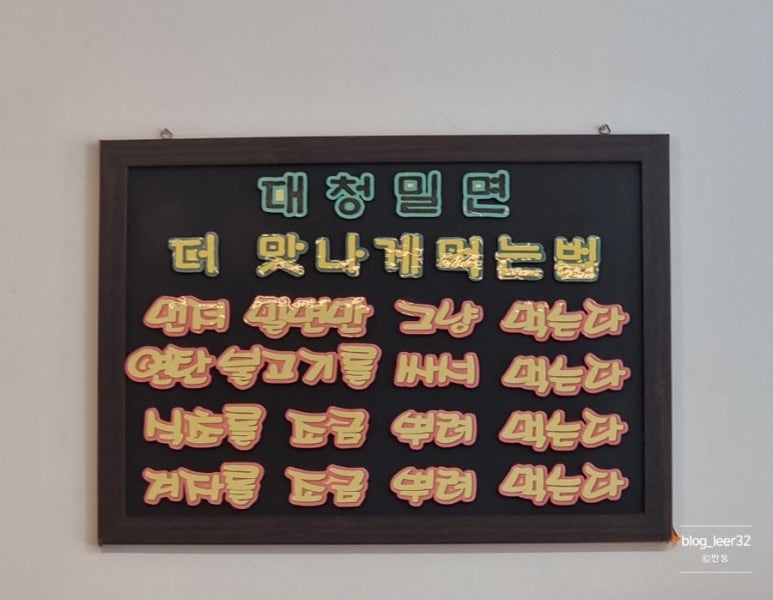 대청밀면
더 맛나게먹는법
먼저 밀면만 그냥 먹는다
연탄불고기를 로서 먹는다
식초를 조금 뿌려 먹는다
겨자를 조금 뿌려 먹는다
blog_leer32
©만능